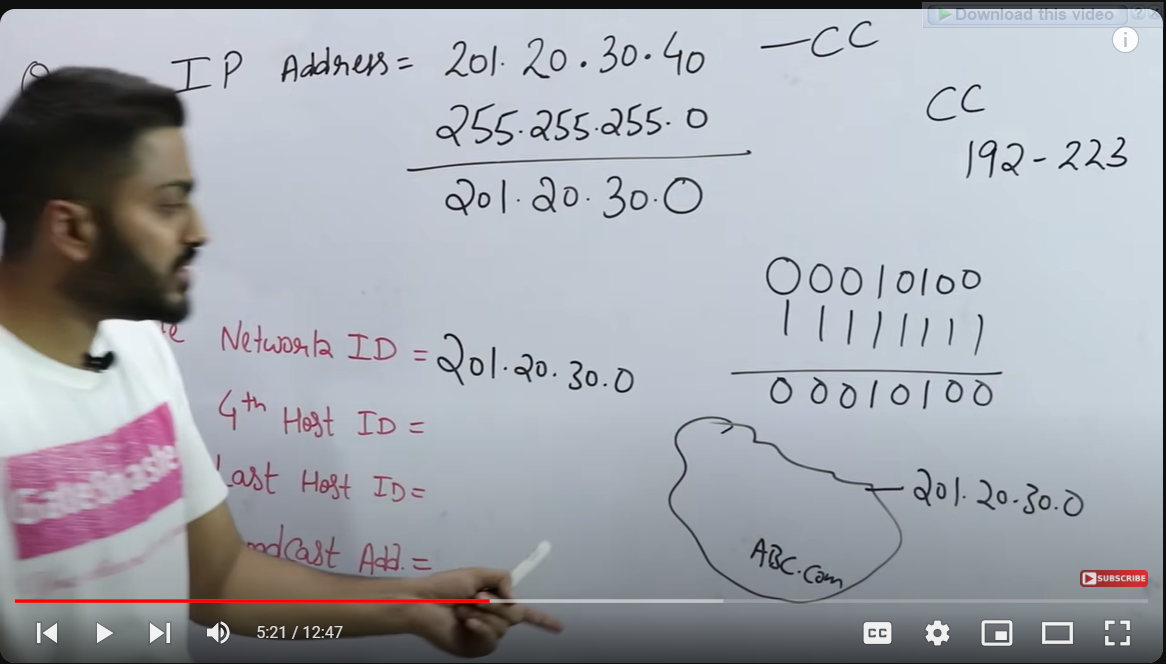 Download this video
IP Address = 201.20.30.40 — CC
255.255.255.0
201.20.30.0
CC
192-223
00010100
11111111
00010100
Network ID = 201.20.30.0
4th Host ID =
Last Host ID =
Add. =
201.20.30.0
ABC.com
SUBSCRIBE
5:21 / 12:47
CC